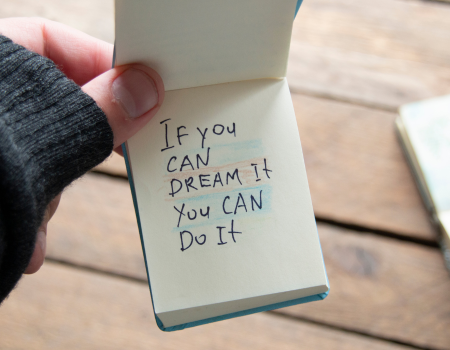 If you
CAN
DREAM It
You CAN
Do It